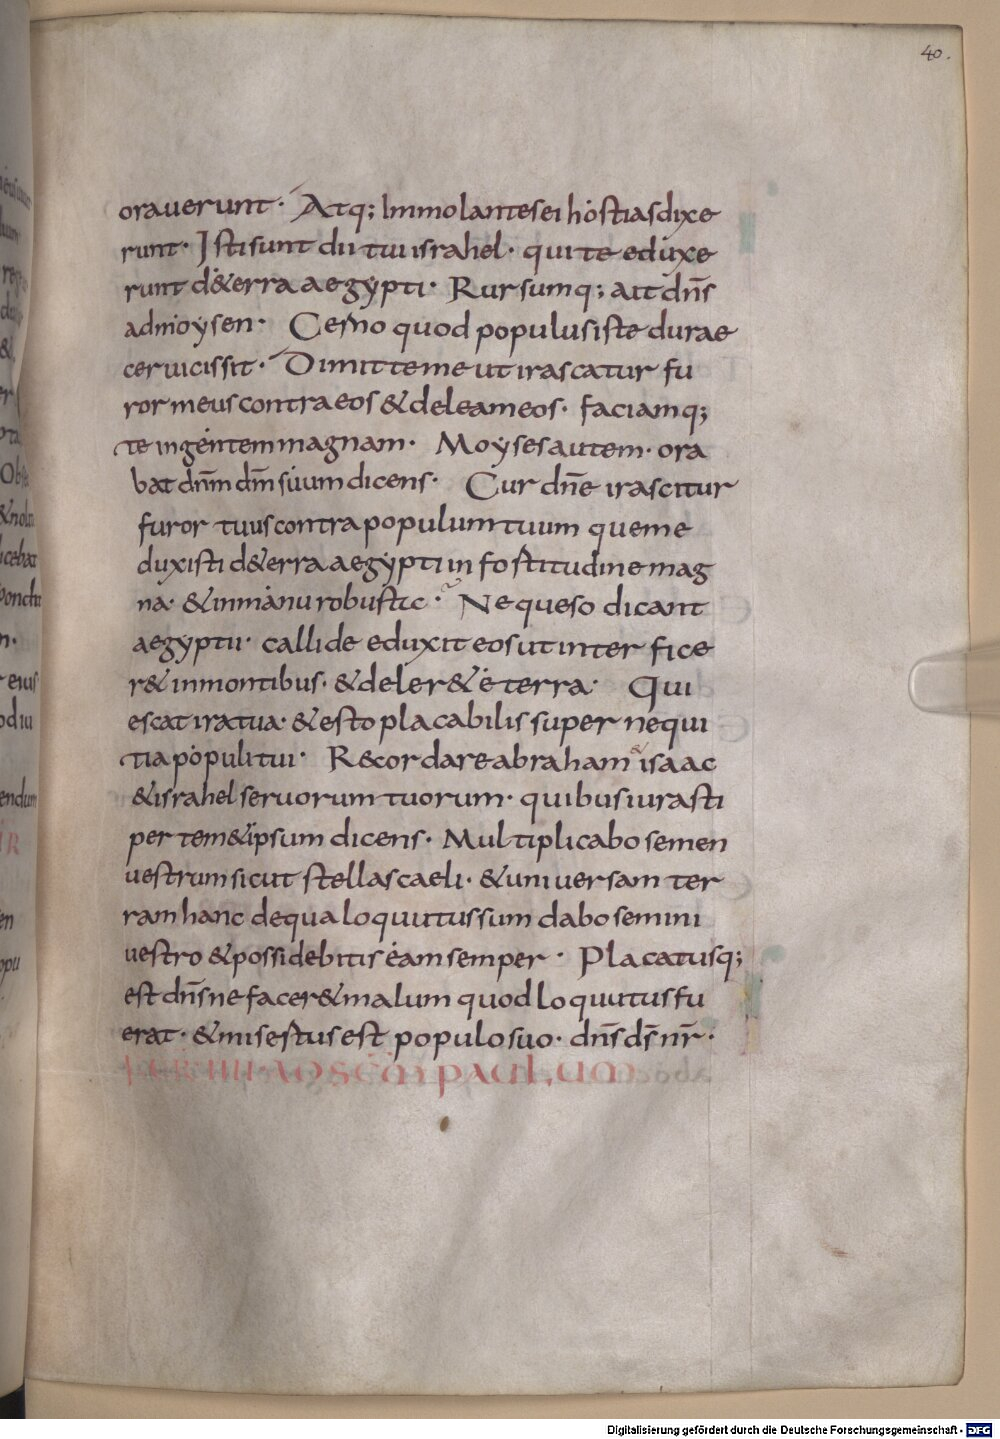 40.
orauerunt· Atq; Immolantes ei hostias dixe
runt· Isti sunt dii tui israhel· qui te eduxe
runt d&erra aegypti· Rursumq; ait dn̄s
admoysen· Cerno quod populus iste durae
ceruicis sit· Dimitte me ut irascatur fu
ror meus contra eos & deleam eos· faciamq;
te in gentem magnam· Moyses autem· ora
bat dn̄m dm̄ suum dicens· Cur dn̄e irascitur
furor tuus contra populum tuum quem e
duxisti d&erra aegypti in fortitudine mag
na· & in manu robusta· Ne queso dicant
aegyptii· callide eduxit eos ut interfice
r& in montibus· & deler& e terra· Qui
escat ira tua· & esto placabilis super nequi
tia populi tui· Recordare abraham & isaac
& israhel seruorum tuorum· quibus iurasti
per tem&ipsum dicens· Multiplicabo semen
uestrum sicut stellas caeli· & uniuersam ter
ram hanc de qua loquutus sum dabo semini
uestro & possidebitis eam semper· Placatusq;
est dn̄s ne facer& malum quod loquutus fu
erat· & misertus est populo suo· dn̄s ds̄ nr̄·
paulum
Digitalisierung gefördert durch die Deutsche Forschungsgemeinschaft - DFG